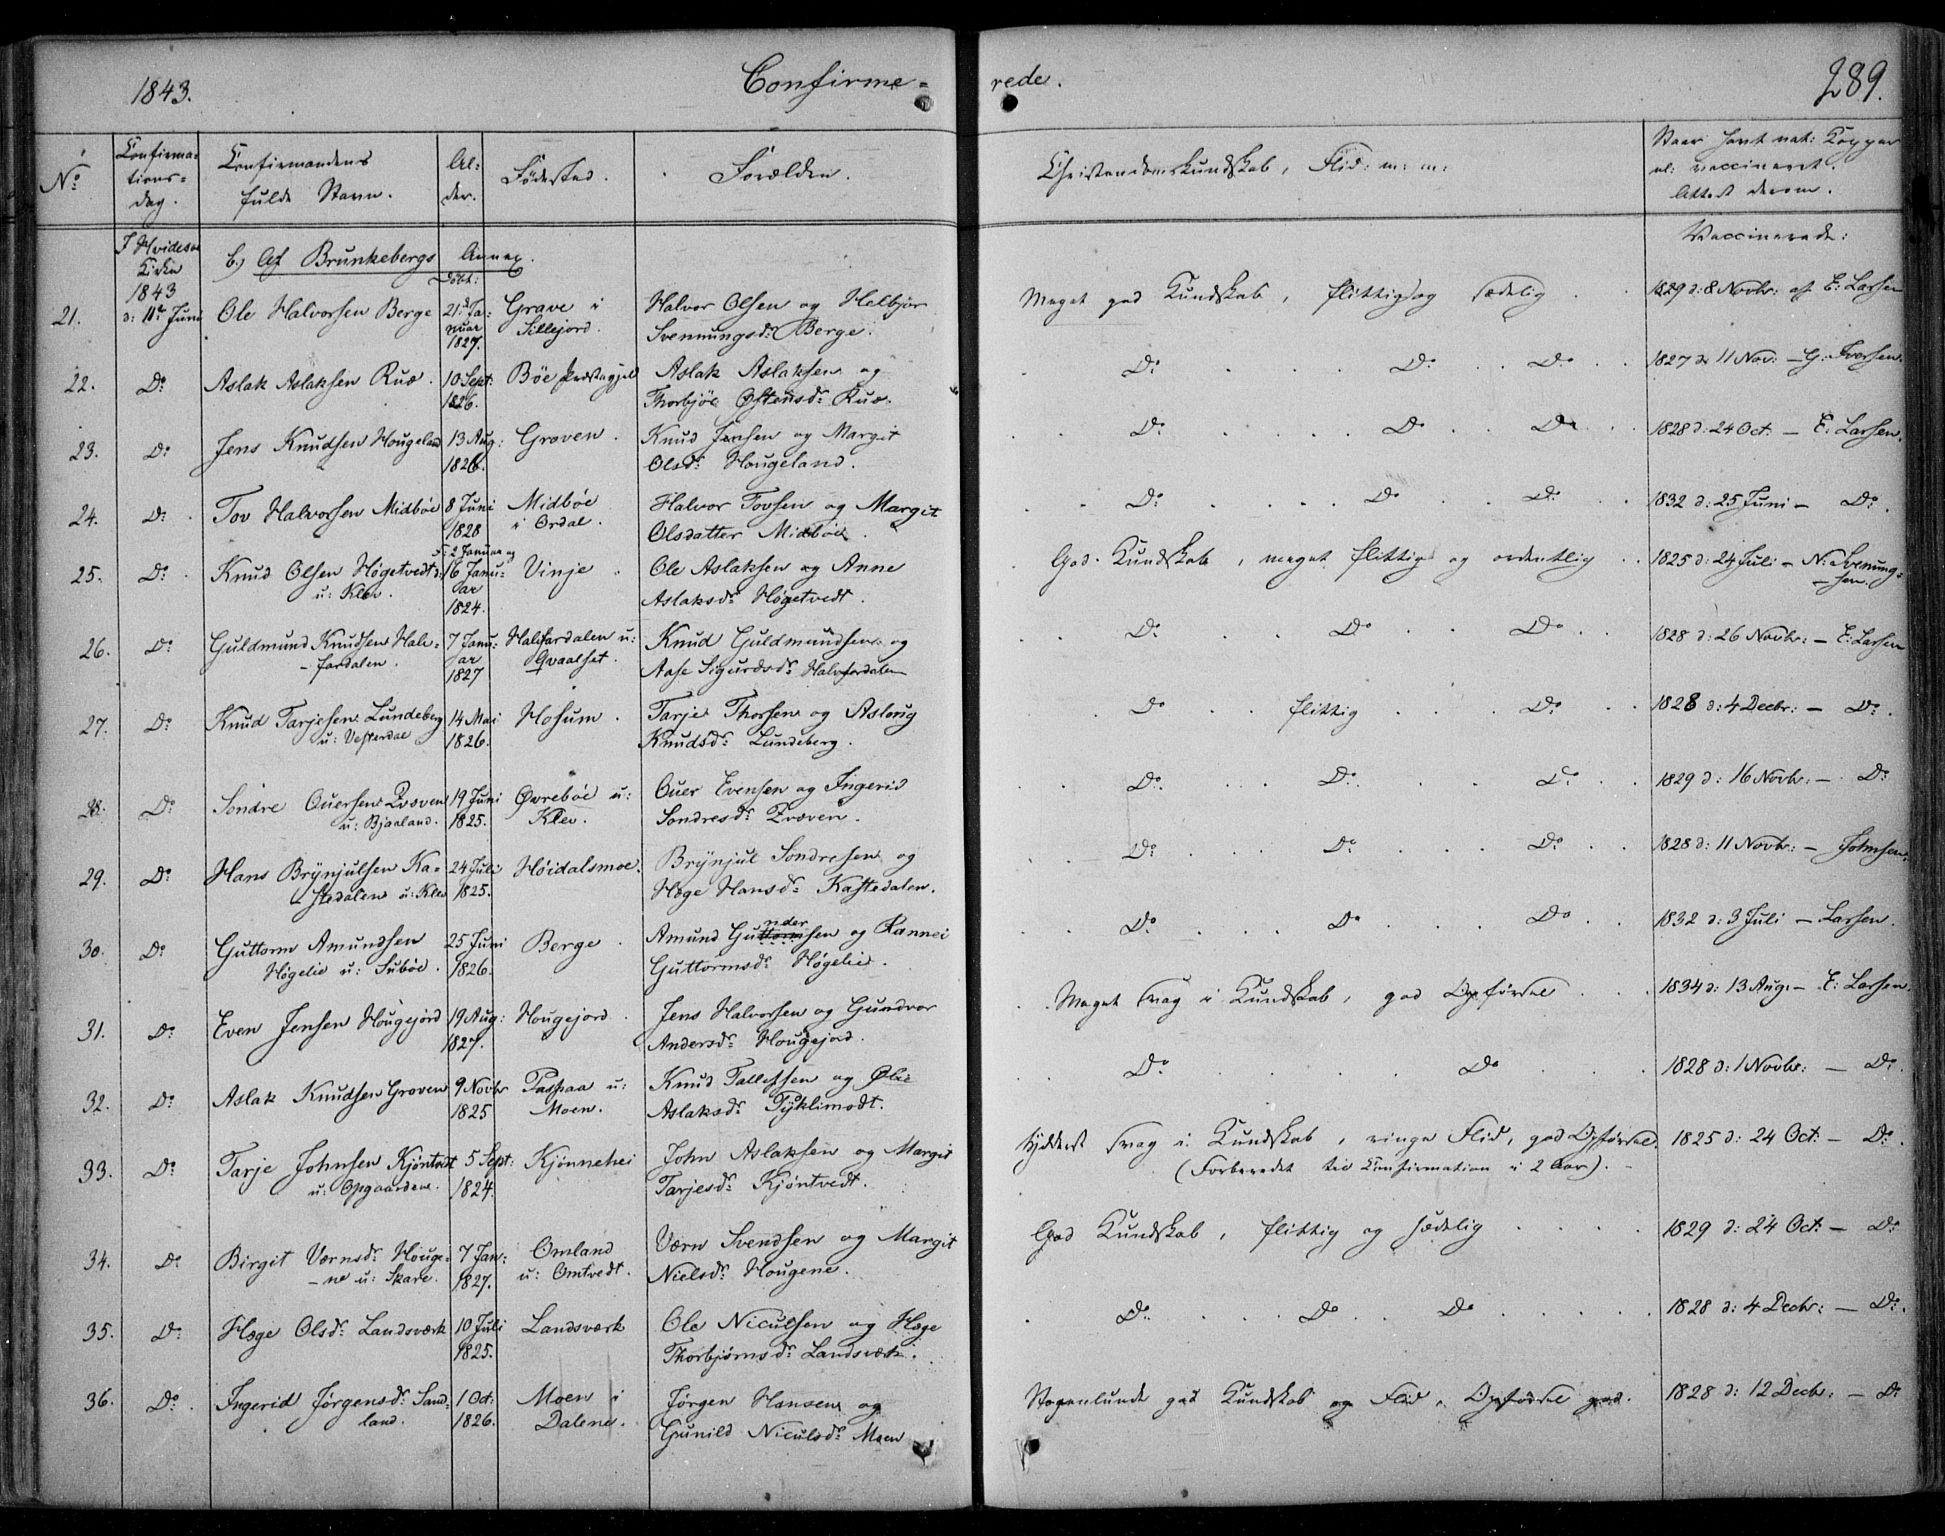 1843. Confirme- rede. 289.
No Confirma- tions- dag. Confirmandens fulde Navn. Al- der. Fødested. Forældre. Christendomskundskab, Flid: m: m: Naar havt nat: Kopper el: vaccineret. Attest derom.
I Hvidesøe Kirke 1843 b.) Af Brunkebergs Annex. Døbt: Vaccinerede:
21. d: 11te Juni Ole Halvorsen Berge 21: Ja- nuar 1827. Grave i Sillejord. Halvor Olsen og Helbjør Svennungsdr. Berge. Meget god Kundskab, flittig og sædelig 1829 d: 8 Novbr: af E: Larsen
22. Do Aslak Aslaksen Ruæ. 10 Sept: 1826. Bøe Præstegjeld Aslak Aslaksen og Thorbjør Østensdr. Ruæ. Do Do Do 1827 d. 11 Nov: - G: Iversen.
23. Do Jens Knudsen Hougeland 13 Aug: 1826. Groven. Knud Jensen og Margit Olsdr. Hougeland. Do Do Do 1828 d: 24 Oct: - E: Larsen.
24. Do Tov Halvorsen Midbøe 8 Juni 1828 Midbøe i Ordal. Halvor Tovsen og Margit Olsdatter Midbøe. Do Do Do 1832 d: 25 Juni - Do.
25. Do Knud Olsen Høgetvedt u: Klev. f: 2 Januar og d: 16 Janu- ar 1824. Vinje Ole Aslaksen og Anne Aslaksdr. Høgetvedt. God Kundskab, meget flittig og ordentlig 1825 d: 24 Juli - N: Svenung- sen.
26. Do Guldmund Knudsen Halv- fardalen. 7 Janu- ar 1827 Halvfardalen u: Qvaalset. Knud Guldmundsen og Aase Sigurdsdr. Halvfardalen Do Do Do 1828 d: 26 Novbr: - E: Larsen
27. Do Knud Tarjesen Lundeberg u: Vesterdal 14 Mai 1826. Hosum. Tarje Thorsen og Asloug Knudsdr. Lundeberg. Do flittig Do 1828 d: 4 Decbr: - Do.
28. Do Søndre Ouersen u: Bjaaland. 19 Juni 1825. Øvrebøe u: Klev. Ouer Evensen og Ingerid Sondresdr. Do Do Do 1829 d: 16 Novbr: - Do
29. Do Hans Brynjulsen Ka- stedalen u: Klev 24 Juli 1825. Høidalsmoe. Brynjul Sondresen og Hæge Hansdr. Kastedalen. Do Do Do 1828 d: 11 Novbr: - Johnsen.
30. Do Guttorm Amundsen Høgelie u: Subøe. 25 Juni 1826. Berge. Amund Gunder sen og Rannei Guttormsdr. Høgelie. Do Do Do 1832 d: 3 Juli - Larsen.
31. Do Even Jensen Hougejord 19 Aug: 1827. Hougejord. Jens Halvorsen og Gundvor Andersdr. Hougejord. Meget svag i Kundskab, god Opførsel 1834 d: 13 Aug. - E: Larsen.
32. Do Aslak Knudsen Groven 9 Novbr 1825 Paspaa u: Moen. Knud Tallefsen og Ølie Aslaksdr. Tyklimodt. Do Do 1828 d: 1 Novbr: - Do.
33. Do Tarje Johnsen Kjøntvedt u: Opgaarden. 5 Sept: 1824. Kjønnehei John Aslaksen og Margit Tarjesdr. Kjøntvedt. Hyderst svag i Kundskab, ringe Flid, god Opførsel. (Forberedet til Confirmation i 2 Aar). 1825 d: 24 Oct: - Do.
34. Do Birgit Værnsdr. Houge- ne u: Skare. 7 Jan: 1827. Omland u: Omtvedt. Værn Svendsen og Margit Nielsdr. Hougene. God Kundskab, flittig og sædelig 1829 d: 24 Oct: - Do
35. Do Hæge Olsdr. Landsværk 10 Juli 1825. Landsværk Ole Niculsen og Hæge Thorbjørnsdr. Landsværk. Do Do Do 1828 d: 4 Decbr: - Do.
36. Do Ingerid Jørgensdr. Sand- land. 1 Oct: 1826. Moen i Dalene. Jørgen Hansen og Gunild Niculsdr. Moen Nogenlunde god Kundskab og Flid, Opførsel god. 1828 d: 12 Decbr: - Do